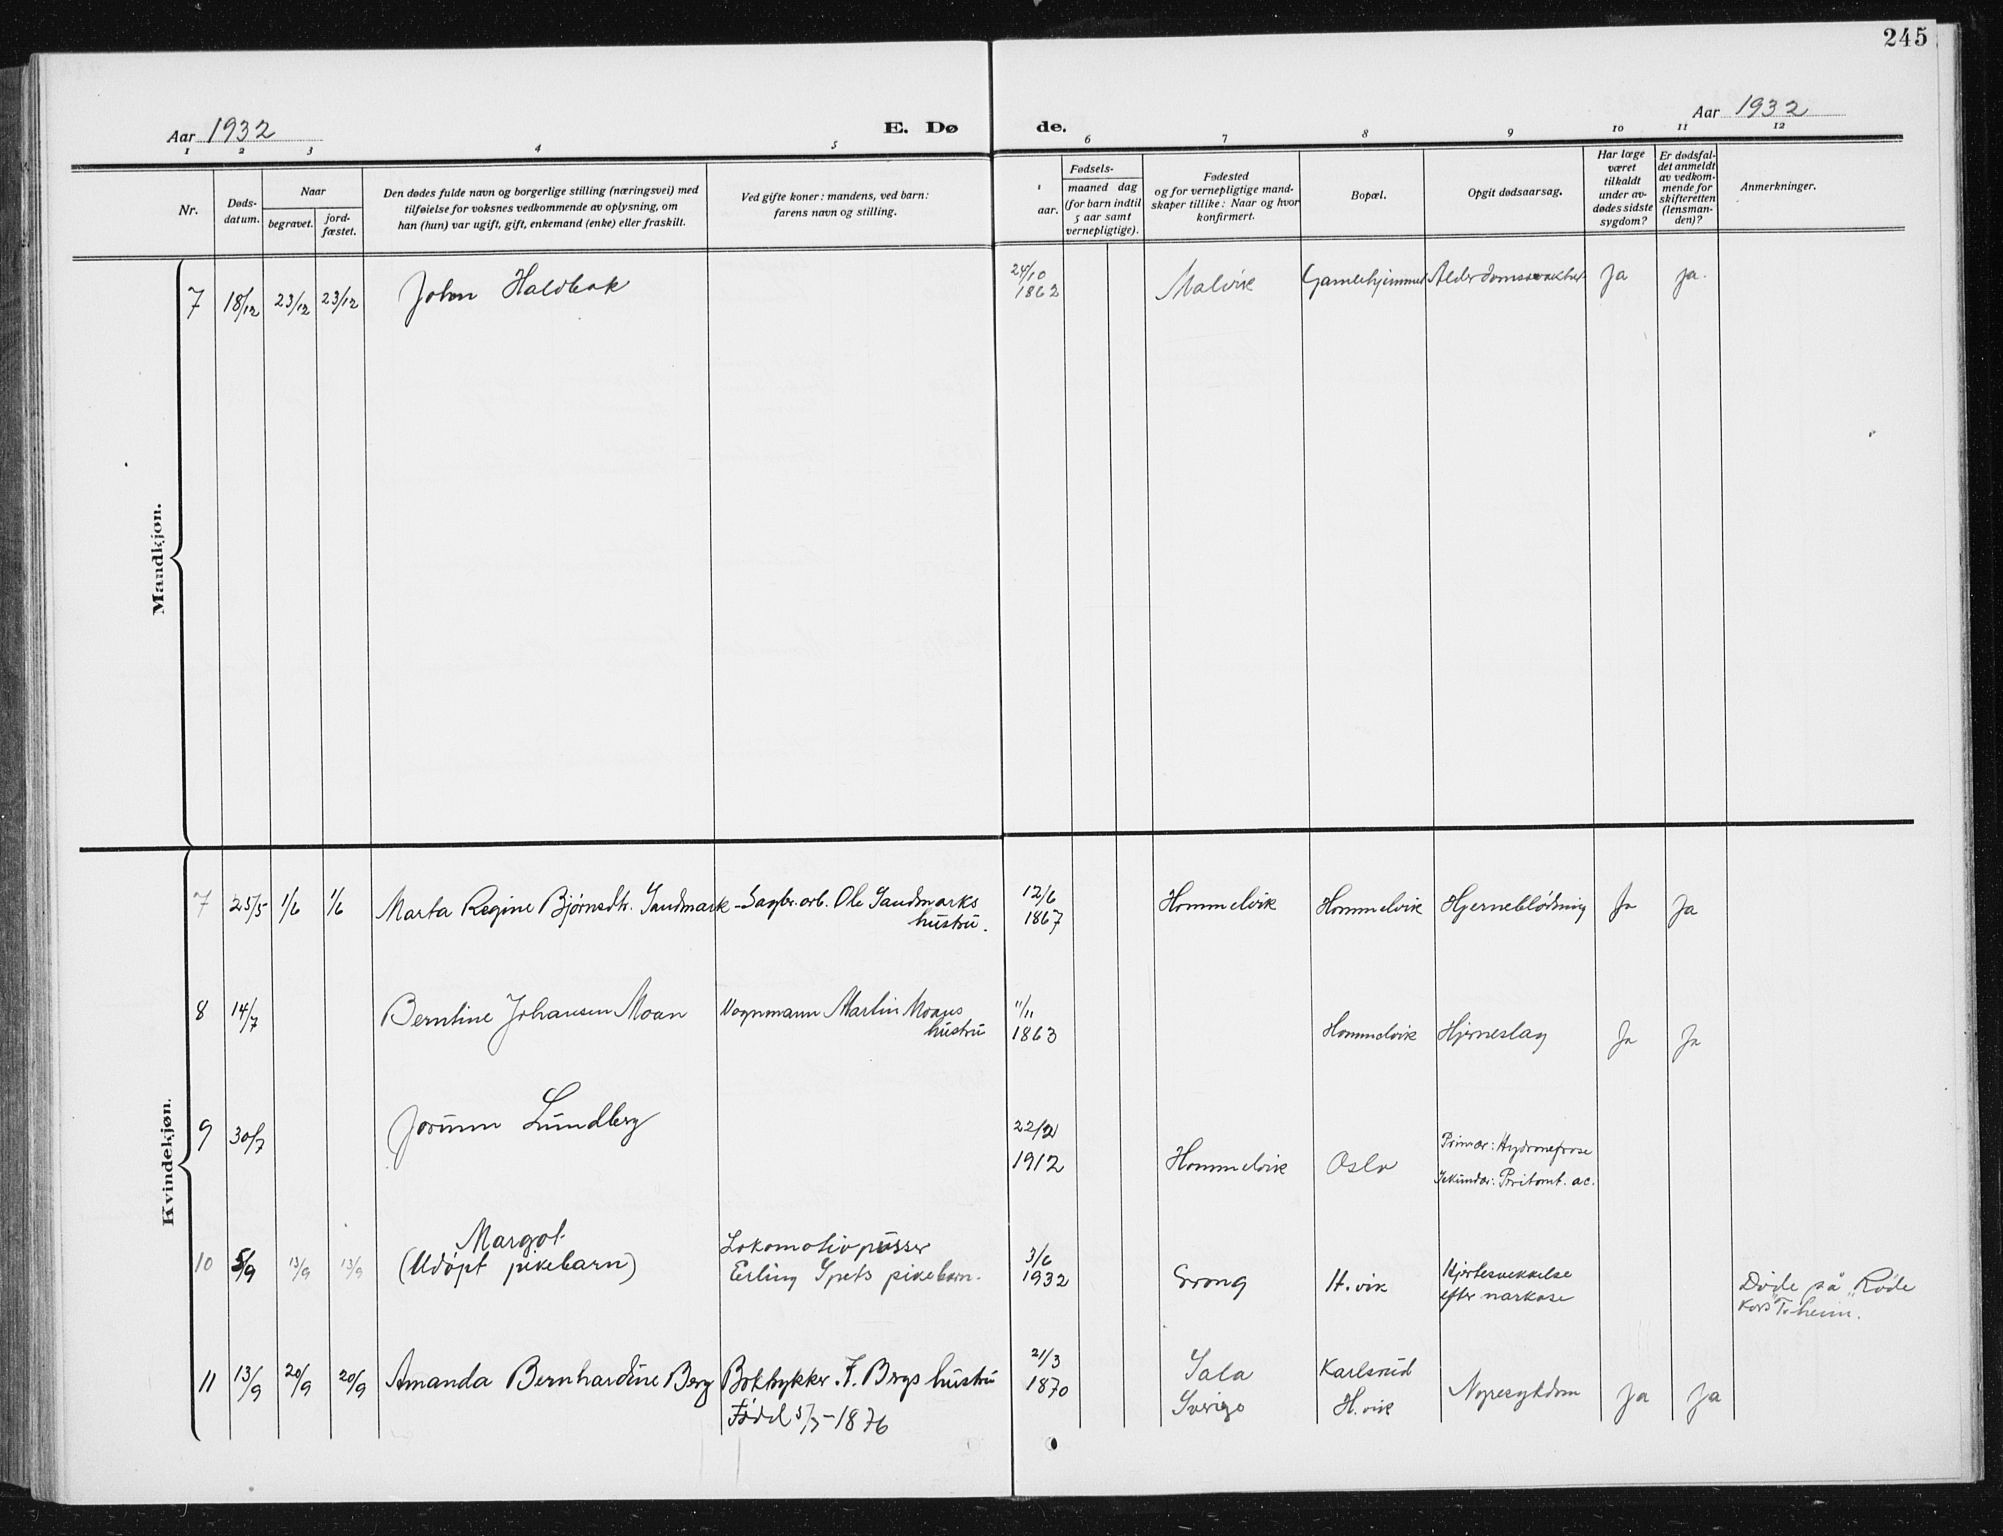 245
Aar 1932
E. Dø
de.
Aar 1932
1 2 3 4 5 6 7 8 9 10 11 12
Nr.
Døds-
datum.
Naar
begravet.
jord-
fæstet.
Den dødes fulde navn og borgerlige stilling (næringsvei) med
tilføielse for voksnes vedkommende av oplysning, om
han (hun) var ugift, gift, enkemand (enke) eller fraskilt.
Ved gifte koner: mandens, ved barn:
farens navn og stilling.
Fødsels-
aar.
maaned dag
(for barn indtil
5 aar samt
vernepligtige).
Fødested
og for vernepligtige mand-
skaper tillike: Naar og hvor
konfirmert.
Bopæl.
Opgit dødsaarsag.
Har læge
været
tilkaldt
under av-
dødes sidste
sygdom?
Er dødsfal-
det anmeldt
av vedkom-
mende for
skifteretten
(lensman-
den)?
Anmerkninger.
Mandkjøn.
7 18/12 23/12 23/12 John Haldbak 24/10 1862 Malvik Gamlehjemmet Alderdomssvakhet Ja ja.
Kvindekjøn.
7 25/5 1/6 1/6 Marta Regine Bjørnsdtr. Sandmark - Sagbr. arb. Ole Sandmarks
hustru.
12/6
1867 Hommelvik Hommelvik Hjerneblødning Ja Ja
8 14/7 Berntine Johansen Moan Vognmann Martin Moans
hustru
11/11
1863 Hommelvik Hjerneslag Ja Ja
9 30/7 Jorunn Lundberg
22/2
1912 Hommelvik Oslo Primær: Hydronefrose
Sekundær: Peritonit. ac.
10 5/9 13/9 13/9 Margot
(Udøpt pikebarn)
Lokomotivpusser
Erling Spets pikebarn.
3/6
1932 Grong H.vik Hjertesvekkelse
efter narkose
Døde på "Røde
Kors" T.heim.
11 13/9 20/9 20/9 Amanda Bernhardine Berg Boktrykker F. Bergs hustru
Fødd 5/5-1876
21/3
1870 Sala
Sverige
Karlsrud
H.vik
Nyresykdom Ja Ja